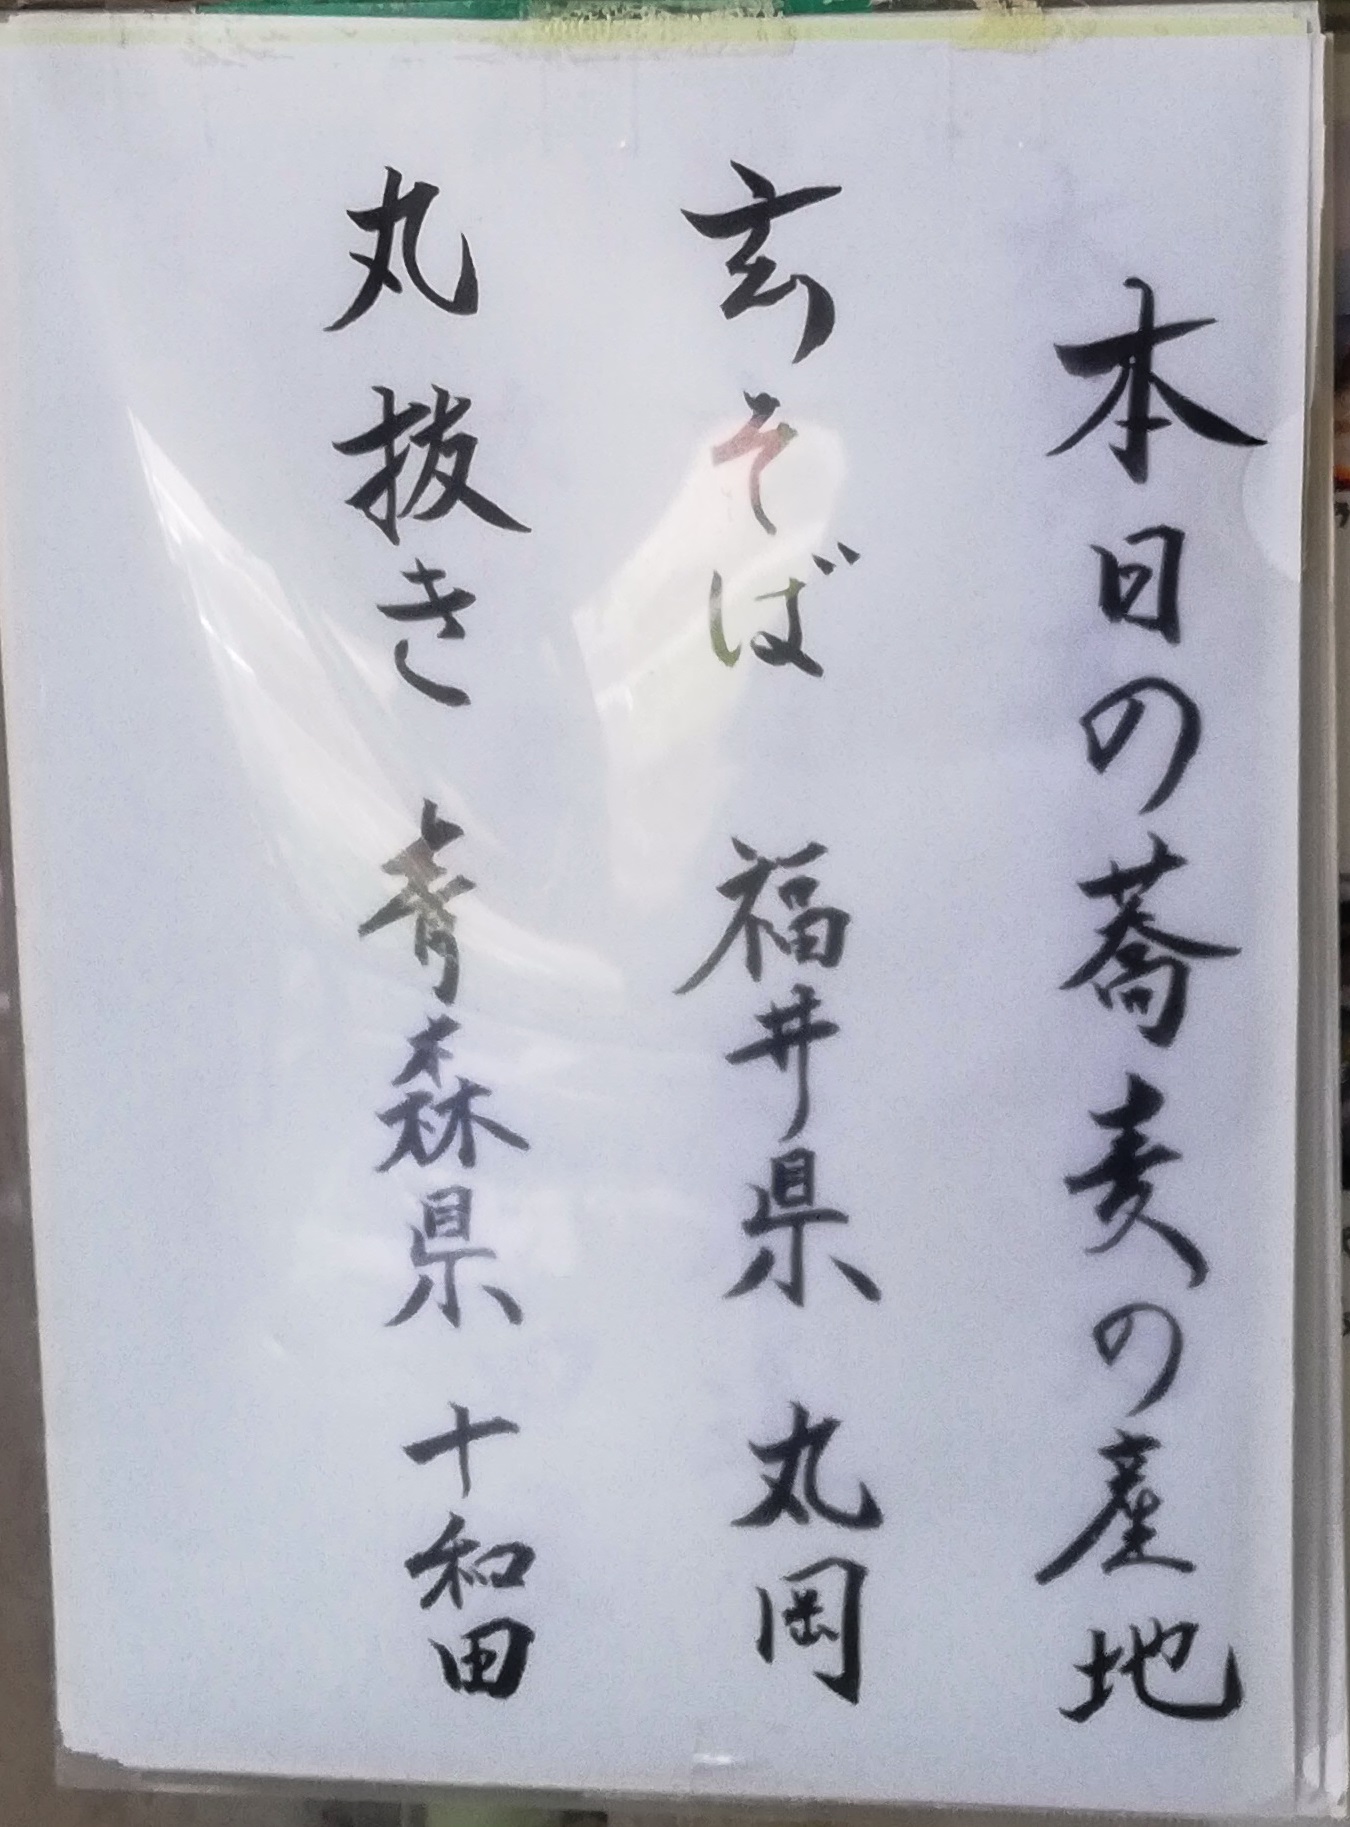 本日の蕎麦の産地
玄そば 福井県 丸岡
丸抜き 青森県 十和田